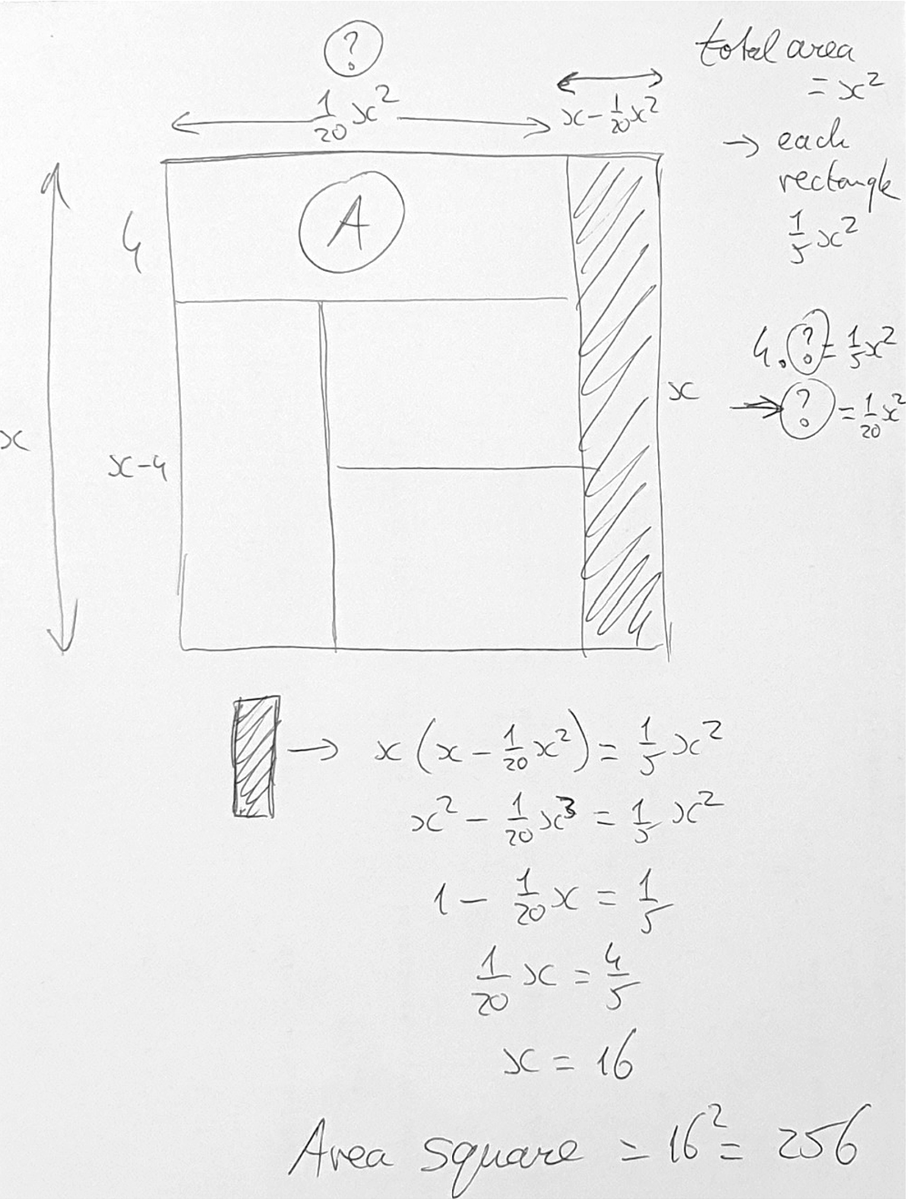 ?
1/20 x²
x - 1/20 x²
total area
= x²
→ each
rectangle
1/5 x²
A
4
4 · ? = 1/5 x²
→ ? = 1/20 x²
x
x
x-4
→ x (x - 1/20 x²) = 1/5 x²
x² - 1/20 x³ = 1/5 x²
1 - 1/20 x = 1/5
1/20 x = 4/5
x = 16
Area square = 16² = 256